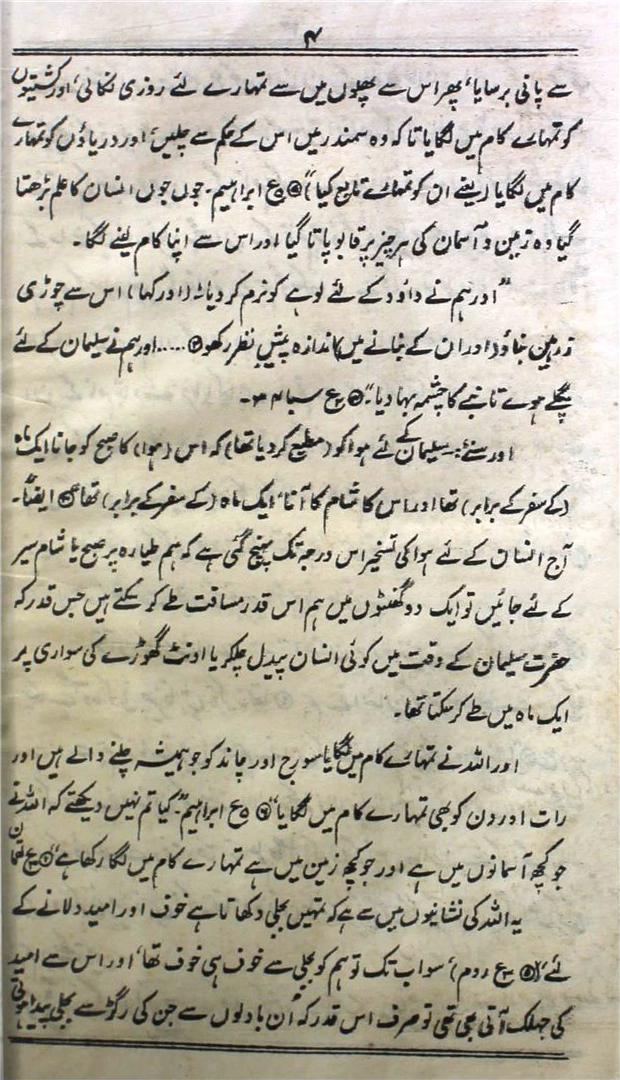 ۴
سے پانی برسایا، پھر اس سے پھلوں میں سے تمہارے لئے روزی نکالی، اور کشتیوں
کو تمہارے کام میں لگایا تا کہ وہ سمندر میں اس کے حکم سے چلیں، اور دریاؤں کو تمہارے
کام میں لگایا (یعنے ان کو تمہارے تابع کیا)" ع ابراہیم۔ جوں جوں انسان کا علم بڑھتا
گیا وہ زمین و آسمان کی ہر چیز پر قابو پاتا گیا اور اس سے اپنا کام لینے لگا۔
"اور ہم نے داؤد کے لئے لوہے کو نرم کر دیا (اور کہا) اس سے چوڑی
زرہیں بناؤ اور ان کے بنانے میں اندازہ پیش نظر رکھو ..... اور ہم نے سلیمان کے لئے
پگلے ہوے تانبے کا چشمہ بہا دیا۔" ع سبا ۳۴۔
اور سنئے: سلیمان کے لئے ہوا کو (مطیع کر دیا تھا) کہ اس (ہوا) کا صبح کو جانا ایک ماہ
(کے سفر کے برابر) تھا اور اس کا شام کا آنا، ایک ماہ (کے سفر کے برابر) تھا ایضاً۔
آج انسان کے لئے ہوا کی تسخیر اس درجہ تک پہنچ گئی ہے کہ ہم طیارہ پر صبح یا شام سیر
کے لئے جائیں تو ایک دو گھنٹوں میں ہم اس قدر مسافت طے کر سکتے ہیں جس قدر کہ
حضرت سلیمان کے وقت میں کوئی انسان پیدل چلکر یا اونٹ گھوڑے کی سواری پر
ایک ماہ میں طے کر سکتا تھا۔
اور اللہ نے تمہارے کام میں لگایا سورج اور چاند کو جو ہمیشہ چلنے والے ہیں اور
رات اور دن کو بھی تمہارے کام میں لگایا" ع ابراہیم۔ کیا تم نہیں دیکھتے کہ اللہ نے
جو کچھ آسمانوں میں ہے اور جو کچھ زمین میں ہے تمہارے کام میں لگا رکھا ہے" ع لقمان
یہ اللہ کی نشانیوں میں سے ہے کہ تمہیں بجلی دکھاتا ہے خوف اور امید دلانے کے
لئے" (ع روم) سو اب تک تو ہم کو بجلی سے خوف ہی خوف تھا، اور اس سے امید
کی جھلک آتی بھی تھی تو صرف اس قدر کہ اُن بادلوں سے جن کی رگڑ سے بجلی پیدا ہوتی